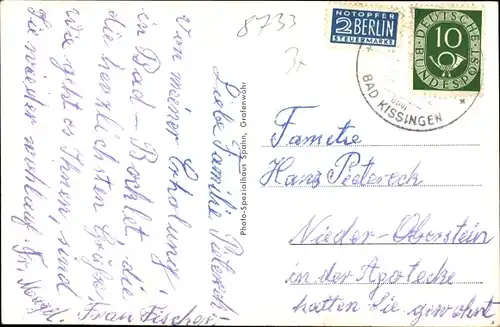 8733
3,-
NOTOPFER
2 BERLIN
STEUERMARKE
DEUTSCHE
10
BUNDESPOST
BAD KISSINGEN
Photo-Spezialhaus Spahn, Grafenwöhr
Liebe Familie
von meiner Erholung,
in Bad-Bocklet, die
die herzlichsten Grüße.
Wie geht es Ihnen, sind
Sie wieder wohlauf. Fr.
Frau Fischer.
Familie
Hans
Nieder-Oberstein
in der Apotecke
hatten Sie gewohnt.